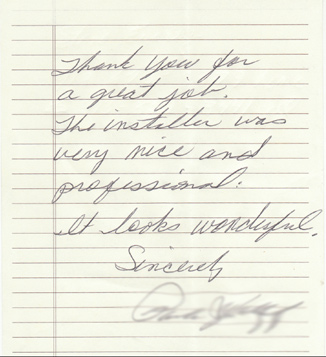 Thank you for
a great job.
The installer was
very nice and
professional.
It looks wonderful.
Sincerely